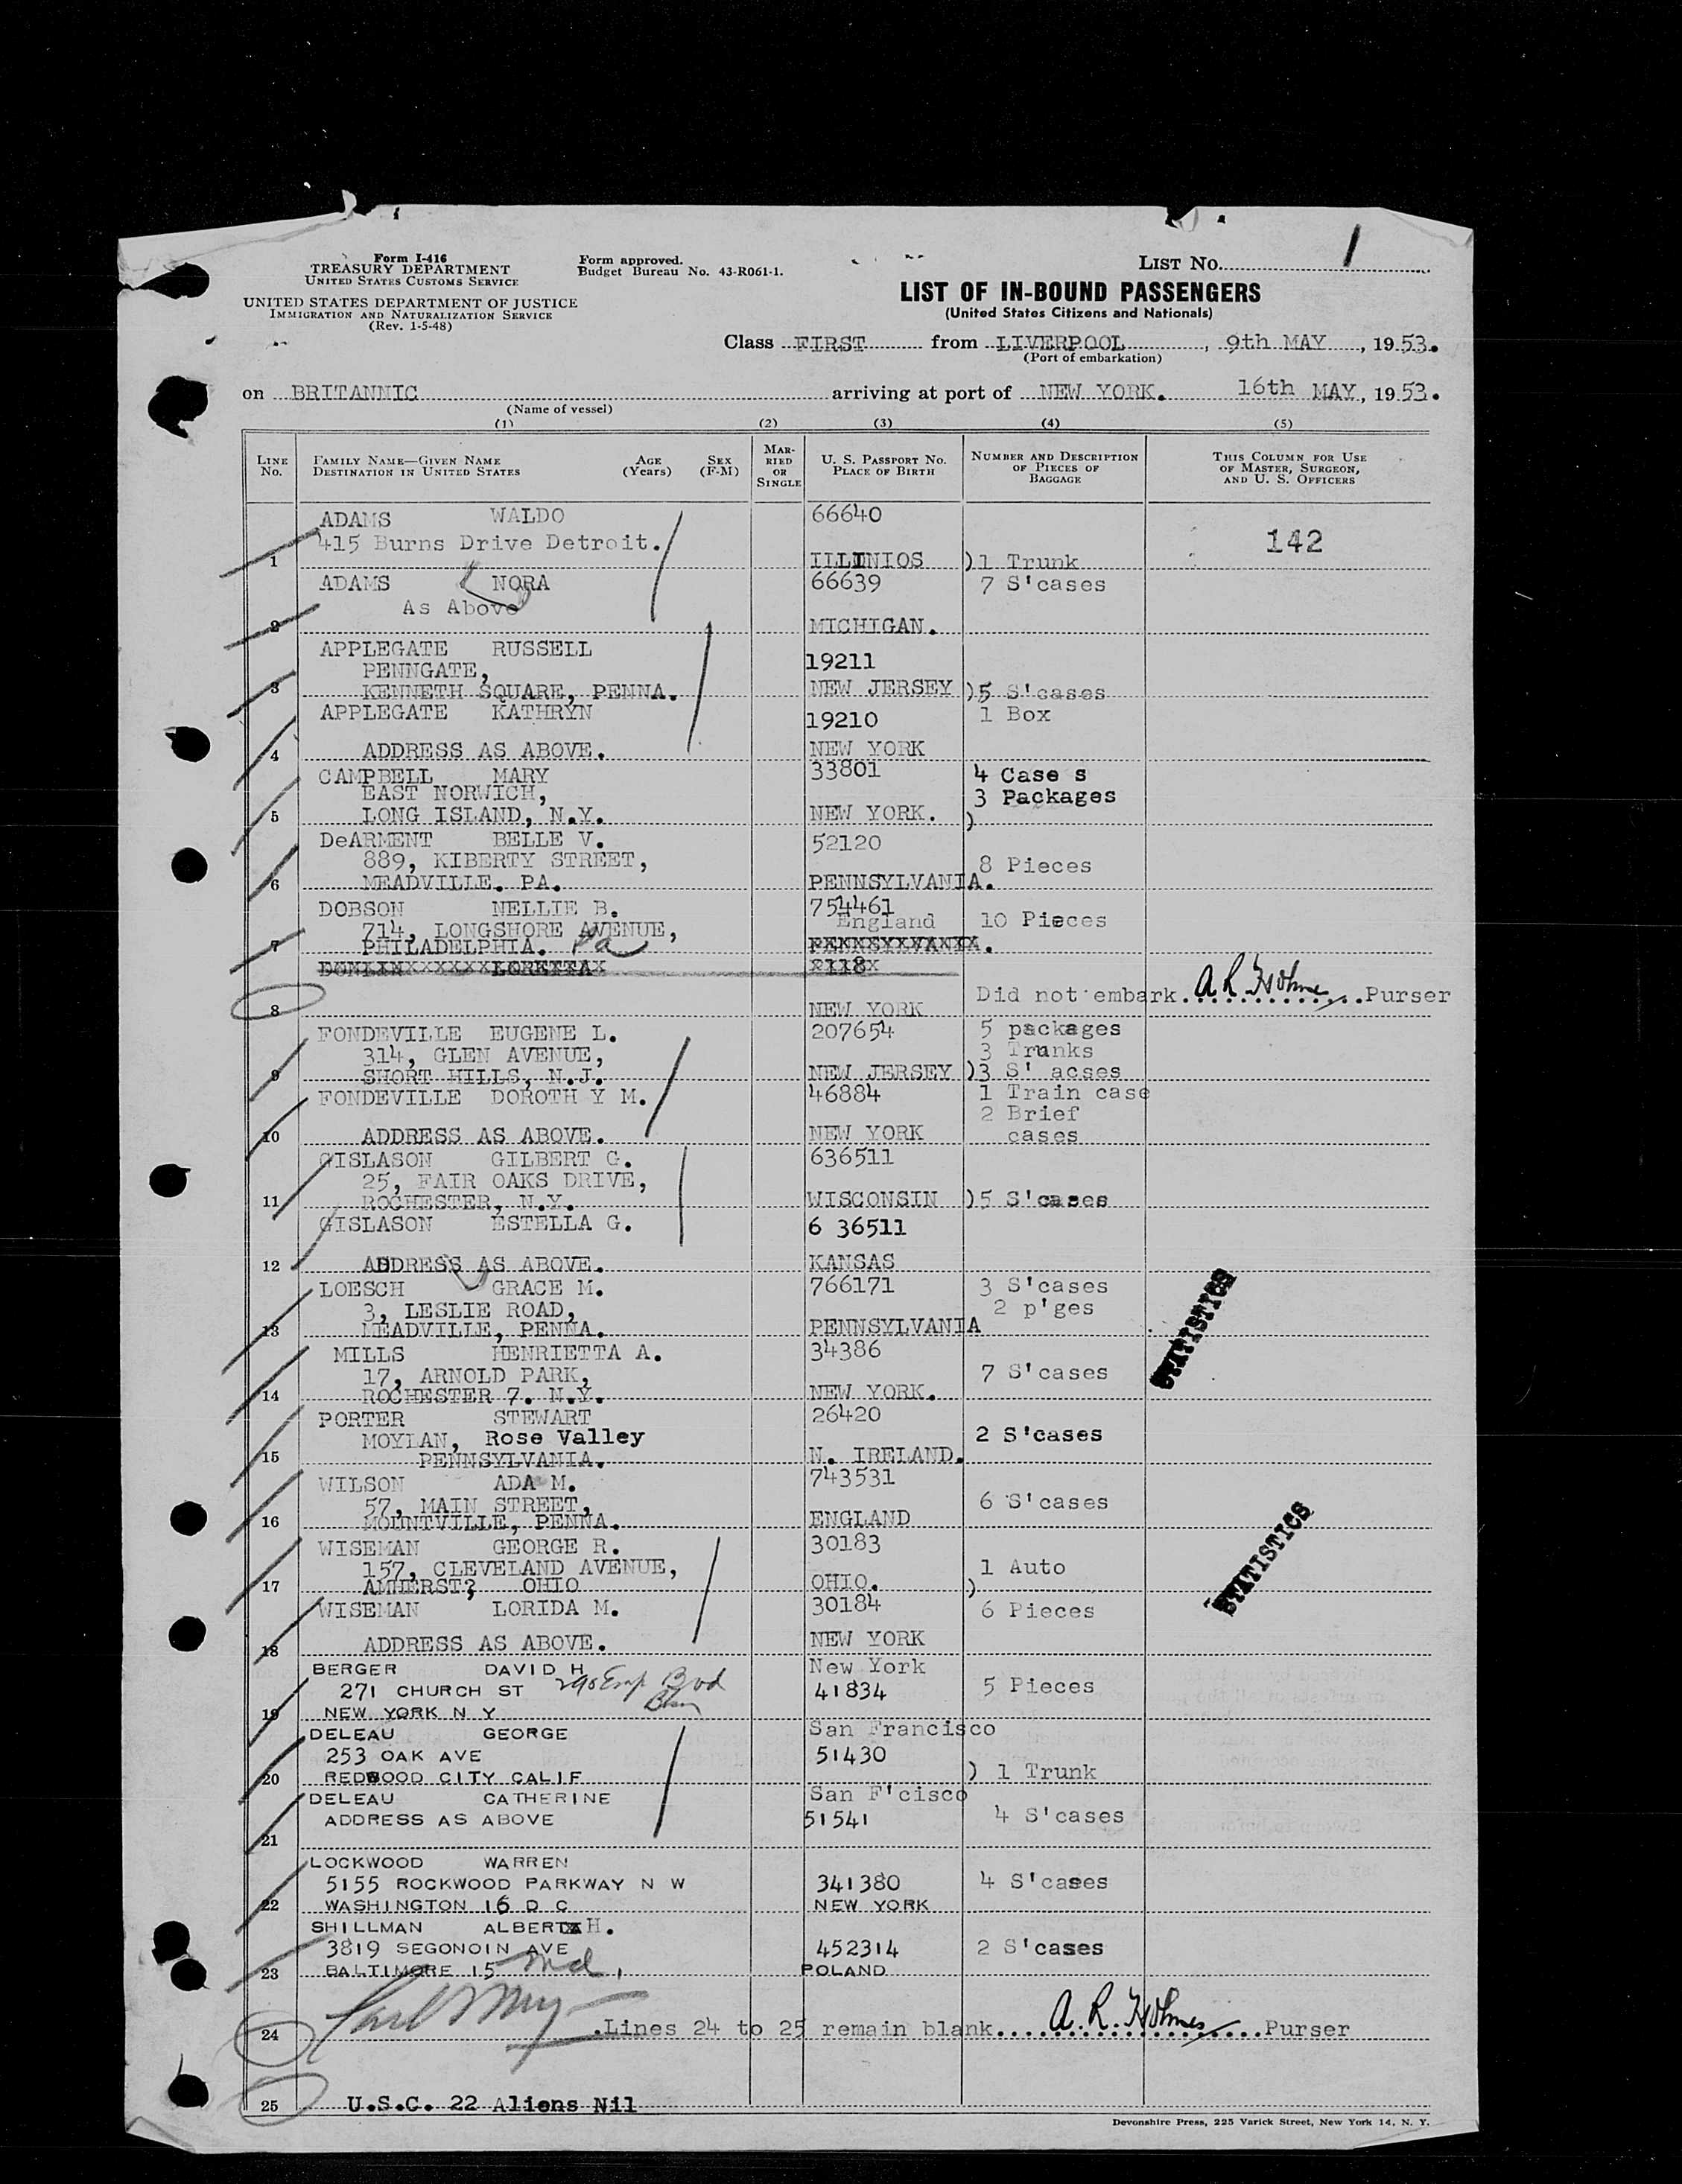 Form I-416
TREASURY DEPARTMENT
UNITED STATES CUSTOMS SERVICE
UNITED STATES DEPARTMENT OF JUSTICE
IMMIGRATION AND NATURALIZATION SERVICE
(Rev. 1-5-48)
Form approved.
Budget Bureau No. 43-R061-1.
LIST NO. 1
LIST OF IN-BOUND PASSENGERS
(United States Citizens and Nationals)
Class FIRST from LIVERPOOL, 9th MAY, 1953.
(Port of embarkation)
on BRITANNIC arriving at port of NEW YORK. 16th MAY, 1953.
(Name of vessel)
(1) (2) (3) (4) (5)
LINE NO. FAMILY NAME—GIVEN NAME DESTINATION IN UNITED STATES AGE (Years) SEX (F-M) MARRIED OR SINGLE U. S. PASSPORT NO. PLACE OF BIRTH NUMBER AND DESCRIPTION OF PIECES OF BAGGAGE THIS COLUMN FOR USE OF MASTER, SURGEON, AND U. S. OFFICERS
ADAMS WALDO 66640
415 Burns Drive Detroit. 142
1 ILLINIOS )1 Trunk
ADAMS NORA 66639 7 S'cases
As Above
2 MICHIGAN.
APPLEGATE RUSSELL
PENNGATE, 19211
3 KENNETH SQUARE, PENNA. NEW JERSEY )5 S'cases
APPLEGATE KATHRYN 19210 1 Box
4 ADDRESS AS ABOVE. NEW YORK
CAMPBELL MARY 33801 4 Case s
EAST NORWICH, 3 Packages
5 LONG ISLAND, N.Y. NEW YORK. )
DeARMENT BELLE V. 52120
889, KIBERTY STREET, 8 Pieces
6 MEADVILLE. PA. PENNSYLVANIA.
DOBSON NELLIE B. 754461
714, LONGSHORE AVENUE, England 10 Pieces
7 PHILADELPHIA. Pa PXNNSYXVANIX.
DONLINXXXXXXLORETTAX 2118X
Did not embark. A R Holme Purser
8 NEW YORK
FONDEVILLE EUGENE L. 207654 5 packages
314, GLEN AVENUE, 3 Trunks
9 SHORT HILLS, N.J. NEW JERSEY )3 S' acses
FONDEVILLE DOROTH Y M. 46884 1 Train case
2 Brief
10 ADDRESS AS ABOVE. NEW YORK cases
GISLASON GILBERT G. 636511
25, FAIR OAKS DRIVE,
11 ROCHESTER, N.Y. WISCONSIN )5 S'cases
GISLASON ESTELLA G. 6 36511
12 ADDRESS AS ABOVE. KANSAS
LOESCH GRACE M. 766171 3 S'cases
3, LESLIE ROAD, 2 p'ges
13 MEADVILLE, PENNA. PENNSYLVANIA
STATISTICS
MILLS HENRIETTA A. 34386
17, ARNOLD PARK, 7 S'cases
14 ROCHESTER 7. N.Y. NEW YORK.
PORTER STEWART 26420
MOYLAN, Rose Valley 2 S'cases
15 PENNSYLVANIA. N. IRELAND.
WILSON ADA M. 743531
57, MAIN STREET, 6 S'cases
16 MOUNTVILLE, PENNA. ENGLAND
STATISTICS
WISEMAN GEORGE R. 30183
157, CLEVELAND AVENUE, 1 Auto
17 AMHERST? OHIO OHIO. )
WISEMAN LORIDA M. 30184 6 Pieces
18 ADDRESS AS ABOVE. NEW YORK
BERGER DAVID H New York
271 CHURCH ST 41834 5 Pieces
19 NEW YORK N Y
DELEAU GEORGE San Francisco
253 OAK AVE 51430
20 REDWOOD CITY CALIF ) 1 Trunk
DELEAU CATHERINE San F'cisco
ADDRESS AS ABOVE 51541 4 S'cases
21
LOCKWOOD WARREN
5155 ROCKWOOD PARKWAY N W 341380 4 S'cases
22 WASHINGTON 16 D C NEW YORK
SHILLMAN ALBERT H.
3819 SEGONOIN AVE 452314 2 S'cases
23 BALTIMORE 15 Md. POLAND
24 .Lines 24 to 25 remain blank.... A. R. Holmes Purser
25 U.S.C. 22 Aliens Nil
Devonshire Press, 225 Varick Street, New York 14, N. Y.